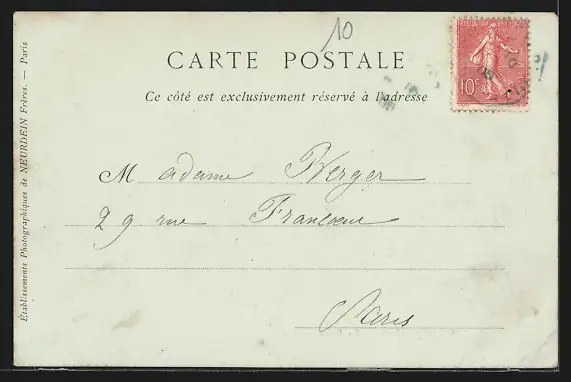 10
CARTE POSTALE
Ce côté est exclusivement réservé à l'adresse
10c
Madame Berger
29 rue Francœur
Paris
Établissements Photographiques de NEURDEIN Frères. — Paris